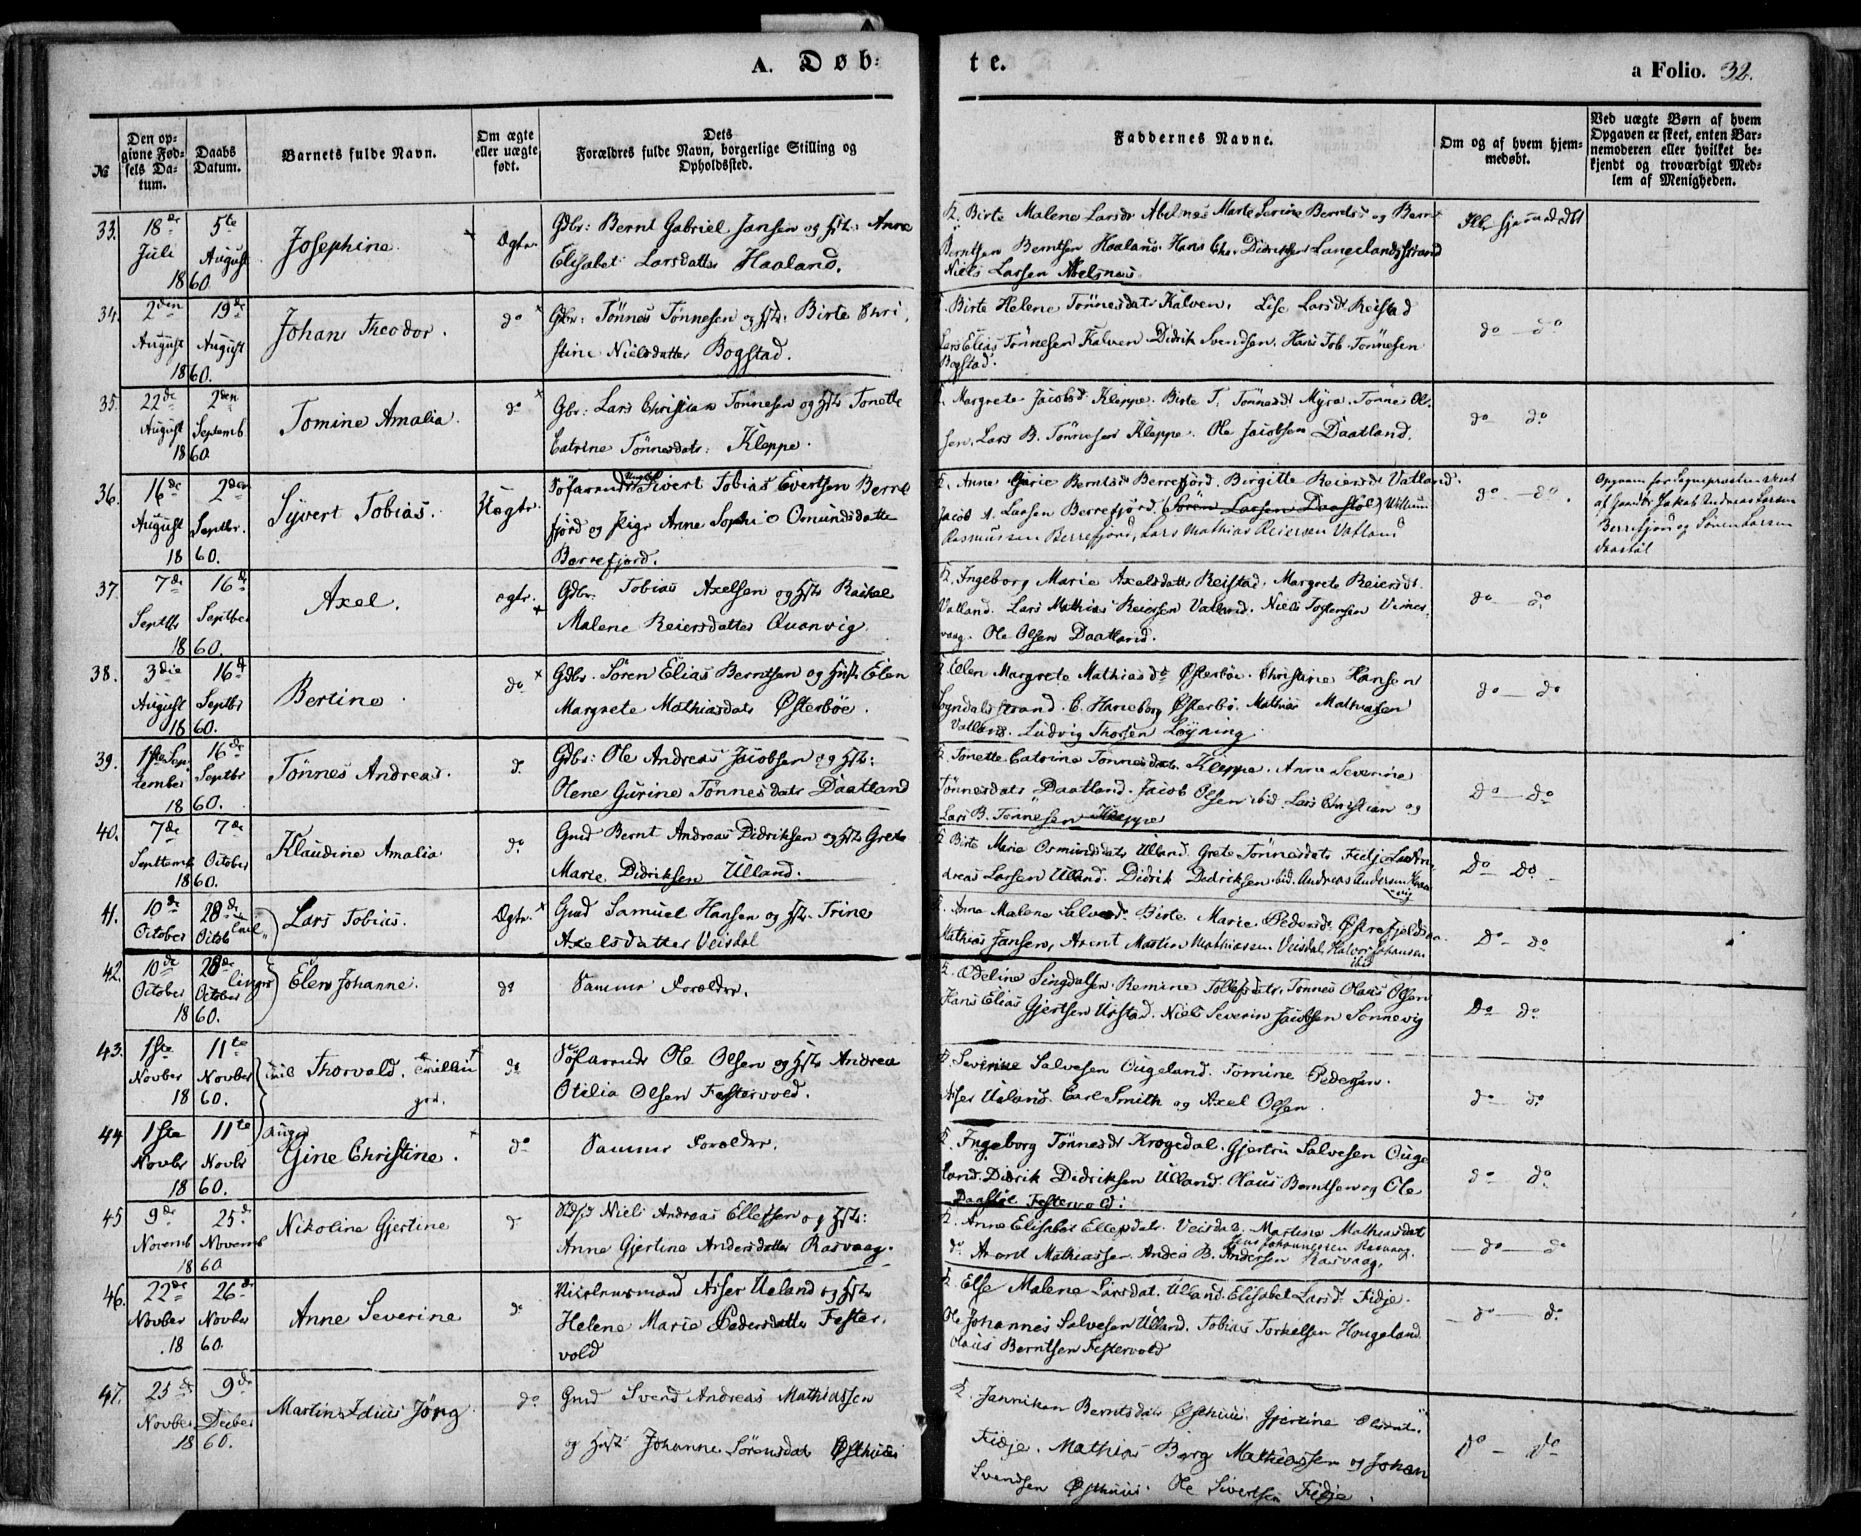 A. Døb=
te.
a Folio. 32.
№
Den op-
givne Fød-
sels Da-
tum.
Daabs
Datum.
Barnets fulde Navn.
Om ægte
eller uægte
født.
Dets
Forældres fulde Navn, borgerlige Stilling og
Opholdssted.
Faddernes Navne.
Om og af hvem hjem-
medøbt.
Ved uægte Børn af hvem
Opgaven er skeet, enten Bar-
nemoderen eller hvilket be-
kjendt og troværdigt Med-
lem af Menigheden.
33. 18de Juli 1860. 5te August
Josephine
Ægte.
Gdbr: Bernt Gabriel Jansen og Hst: Anne
Elisabet Larsdatter Haaland.
Birte Malene Larsdr Abelnes Marte Serine Berntsd og Bernt
Berntsen Berntsen Haaland. Hans Chr. Didriksen Langelandsstrand
Niels Larsen Abelsnes
Ikke hjemmedøbt
34. 2den August 1860. 19de August
Johan Theodor.
do
Gdbr: Tönnes Tönnesen og Hst: Birte Chri
stine Nielsdatter Bogstad.
Birte Helene Tönnesdatr Kalven. Lise Larsdr Reistad
Lars Elias Tönnesen Kalven Didrik Svendsen. Hans Tob. Tönnesen
Bogstad.
do — do
35. 22de August 1860 2den Septemb.
Tomine Amalia.
do
Gbr: Lars Christian Tönnesen og Hst Tonette
Catrine Tönnesdatr: Kleppe.
Margrete Jacobsd Kleppe. Birte T. Tönnesdr Myra. Tönnes Ol-
sen. Lars B. Tönnesen Kleppe. Ole Jacobsen Daatland.
do do
36. 16de August 1860. 2den Septbr.
Syvert Tobias.
Uægte.
Söfarende Ungk. Sivert Tobias Evertsen Berre
fjord og Pige Anne Sophie Omundsdatter
Berrefjord.
Anne Marie Berntsdr Berrefjord. Birgitte Reiersdr Vatland.
Jacob A. Larsen Berrefjord. (Sören Larsen Daastöl) Willum
Rasmussen Berrefjord, Lars Mathias Reiersen Vatland
do — do.
Opgaven for Sognepresten skeet
af Jakob Andreas Larsen
Berrefjord og Sören Larsen
Daastöl
37. 7de Septbr 1860. 16de Septber
Axel.
ægte.
Gdbr. Tobias Axelsen og Hst Rakel
Malene Reiersdatter Quanvig.
Ingeborg Marie Axelsdatter Reistad. Margrete Reiersdr
Vatland. Lars Mathias Reiersen Vatland. Niels Tostensen
vaag. Ole Olsen Daatland.
do — do.
38. 3die August 1860. 16de Septbr
Bertine.
do
Gdbr. Sören Elias Berntsen og Hst: Elen
Margrete Mathiasdatr Østerböe.
Elen Margrete Mathiasdr Østerböe. Christine Hansen
Sogndalsstrand. E. Haneborg Østerbö. Mathias Mathiasen
Vatland. Ludvig Thorsen Löyning
do — do
39. 1ste September 1860. 16de Septbr
Tönnes Andreas.
Gdbr: Ole Andreas Jacobsen og Hst:
Olene Gurine Tönnesdatr Daatland
Tonette Catrine Tönnesdatr Kleppe. Anne Severine
Tönnesdatr Daatland. Jacob Olsen ibid. Lars Christian og
Lars B. Tönnesen Kleppe
do — do
40. 7de Septemb 1860. 7de October
Klaudine Amalia
do
Gmd Bernt Andreas Didriksen og Hst Grete
Marie Didriksen Ulland.
Birte Marie Osmundsdatr Ulland. Grete Tönnesdatr Fidje
dreas Larsen Ulland. Didrik Didriksen ibid. Andreas Andersen
do do.
41. 10de October 28de Octob
Lars Tobias.
Ægte.
Gmd Samuel Hansen og Hst. Trine
Axelsdatter Veisdal
Anne Malene Salvesd. Birte Marie Pedersdr Østrefjeldsaa
Mathias Jansen, Arent Martin Mathiassen Veisdal, Halvor Johansen
ibid
do — do
42. 10de October 1860. 28de October
Elen Johanne.
do
Samme Forældre.
Odeline Singdalsen. Remine Tollefsdatr. Tönnes Olaus Olsen
Hans Elias Gjertsen Urstad. Niels Severin Jacobsen Sonnevig
do — do
43. 1ste Novber 1860. 11te Novber
Thorvald.
do
Söfarende Ole Olsen og Hst Andrea
Otilia Olsen Festervold.
Severine Salvesen Ougeland. Tomine Pedersen.
Asser Ueland. Carl Smith og Axel Olsen.
do — do
44 1ste Novbr 1860. 11te Novbr
Gine Christine.
do
Samme Forældre.
Ingeborg Tönnesdr Krogedal. Gjertru Salvesen Ouge
land. Didrik Didriksen Ulland. Olaus Berntsen og Ole
Daastöl Festervold.
do — do
45 9de Novemb 1860 25de Novemb
Nikoline Gjertine
Niels Andreas Ellefsen og Hst:
Anne Gjertine Andersdatter Rasvaag.
Anne Elisabet Ellefsdatr. Veisdal. Martine Mathiasdat
do. Arent Mathiassen. Andrea B. Andersen Rasvaag.
Jens Johannessen Rasvaag.
— do — do
46. 22de Novber 1860. 26de Novber
Anne Severine
do
Asser Ueland og Hst
Helene Marie Pedersdatter Fester.
vold
Else Malene Larsdat. Ulland. Elisabet Larsd. Fidje.
Ole Johannes Salvesen Ulland. Tobias Torkelsen Hougeland.
Olaus Berntsen Festervold
— do — do.
47. 25de Novber 1860. 9de Decber
Martin Idius Jörg
do
Gmd Svend Andreas Mathiassen
og Hst: Johanne Sörensdatr Østhuus
Jannikan Berntsdatr Østhuus. Gjertine
Fidje. Mathias Berg Mathiassen og Johan
Svendsen Østhuus. Ole Sivertsen Fidje.
do — do